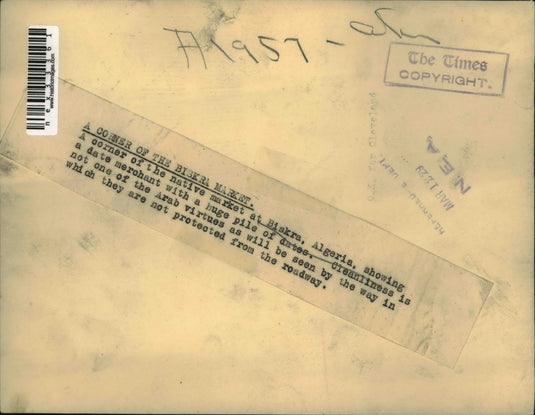 A1957 -
The Times
COPYRIGHT.
A CORNER OF THE BISKRA MARKET.
A corner of the native market at Biskra, Algeria, showing
a date merchant with a huge pile of dates. Cleanliness is
not one of the Arab virtues as will be seen by the way in
which they are not protected from the roadway.
N.E.A.
MAR 12 29
REFERENCE DEPT
www.historicimages.com